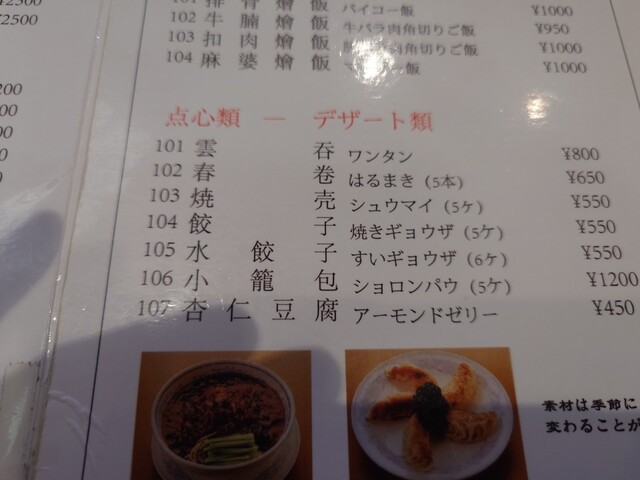 ¥2500
¥2500
101 排骨燴飯 パイコー飯 ¥1000
102 牛腩燴飯 牛バラ肉角切りご飯 ¥950
103 扣肉燴飯 肉角切りご飯 ¥1000
104 麻婆燴飯 飯 ¥1000
点心類 ― デザート類
101 雲吞 ワンタン ¥800
102 春巻 はるまき (5本) ¥650
103 焼売 シュウマイ (5ケ) ¥550
104 餃子 焼きギョウザ (5ケ) ¥550
105 水餃子 すいギョウザ (6ケ) ¥550
106 小籠包 ショロンパウ (5ケ) ¥1200
107 杏仁豆腐 アーモンドゼリー ¥450
素材は季節に
変わることが